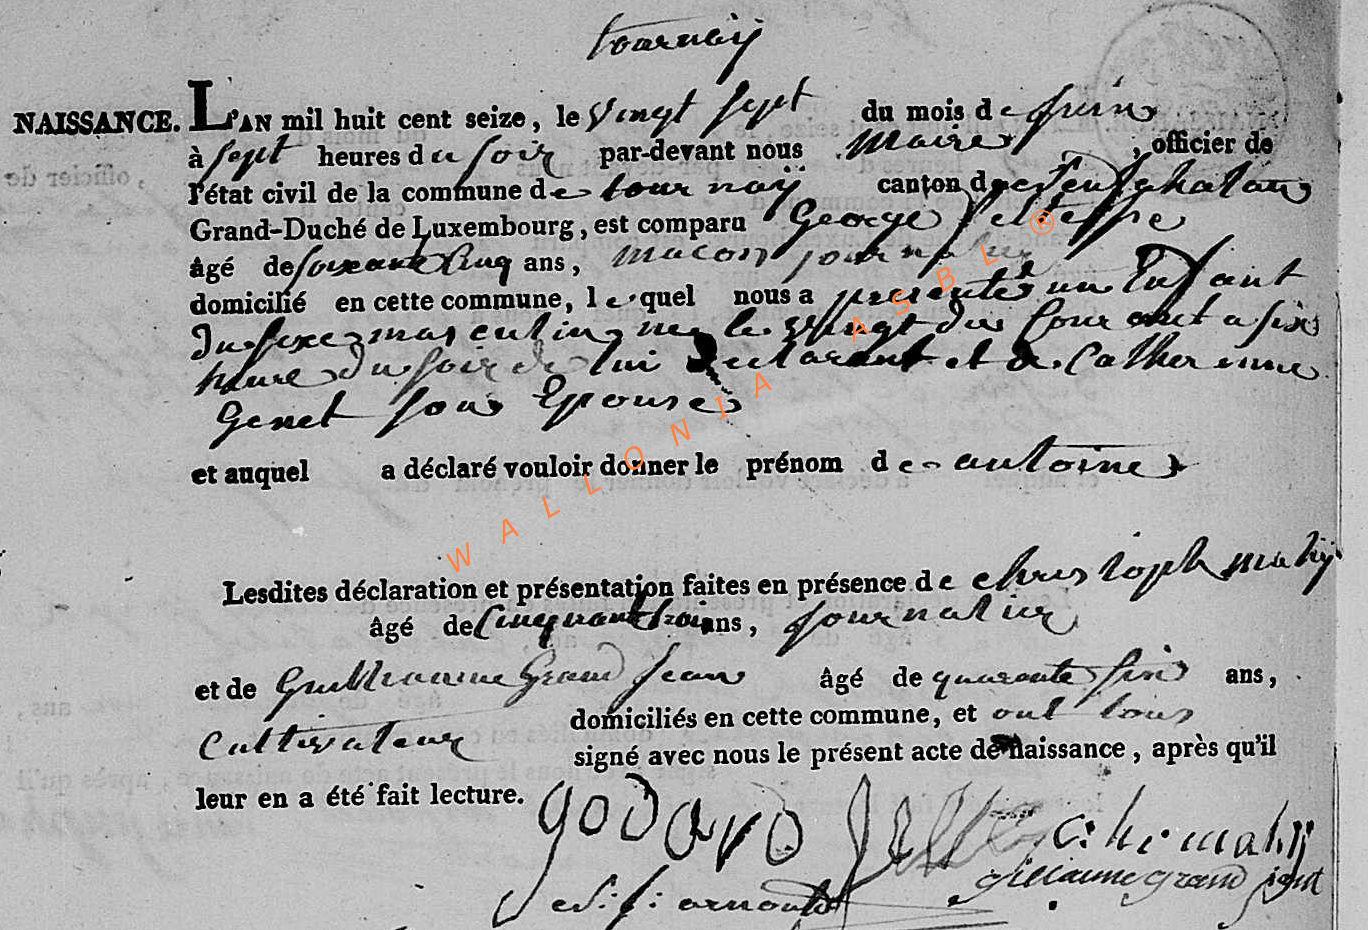 tournaÿ
NAISSANCE. L'AN mil huit cent seize, le vingt sept du mois de juin
à sept heures du soir par-devant nous Maire, officier de
l'état civil de la commune de tournaÿ canton de neufchateau
Grand-Duché de Luxembourg, est comparu George
âgé de soixante Cinq ans, macon journalier
domicilié en cette commune, lequel nous a presenté un Enfant
du sexe masculin, né le vingt du Courant a six
heure du soir de lui declarant et de Catherinne
Genet son Epouse
et auquel a déclaré vouloir donner le prénom de antoine
Lesdites déclaration et présentation faites en présence de christoph mahÿ
âgé de Cinquante trois ans, journalier
et de Guilleaume Grand Jean âgé de quarante six ans,
Cultivateur domiciliés en cette commune, et ont tous
signé avec nous le présent acte de naissance, après qu'il
leur en a été fait lecture.
godard c: h: mahÿ
gilliaume grand jent
arnould
WALLONIA ASBL ®